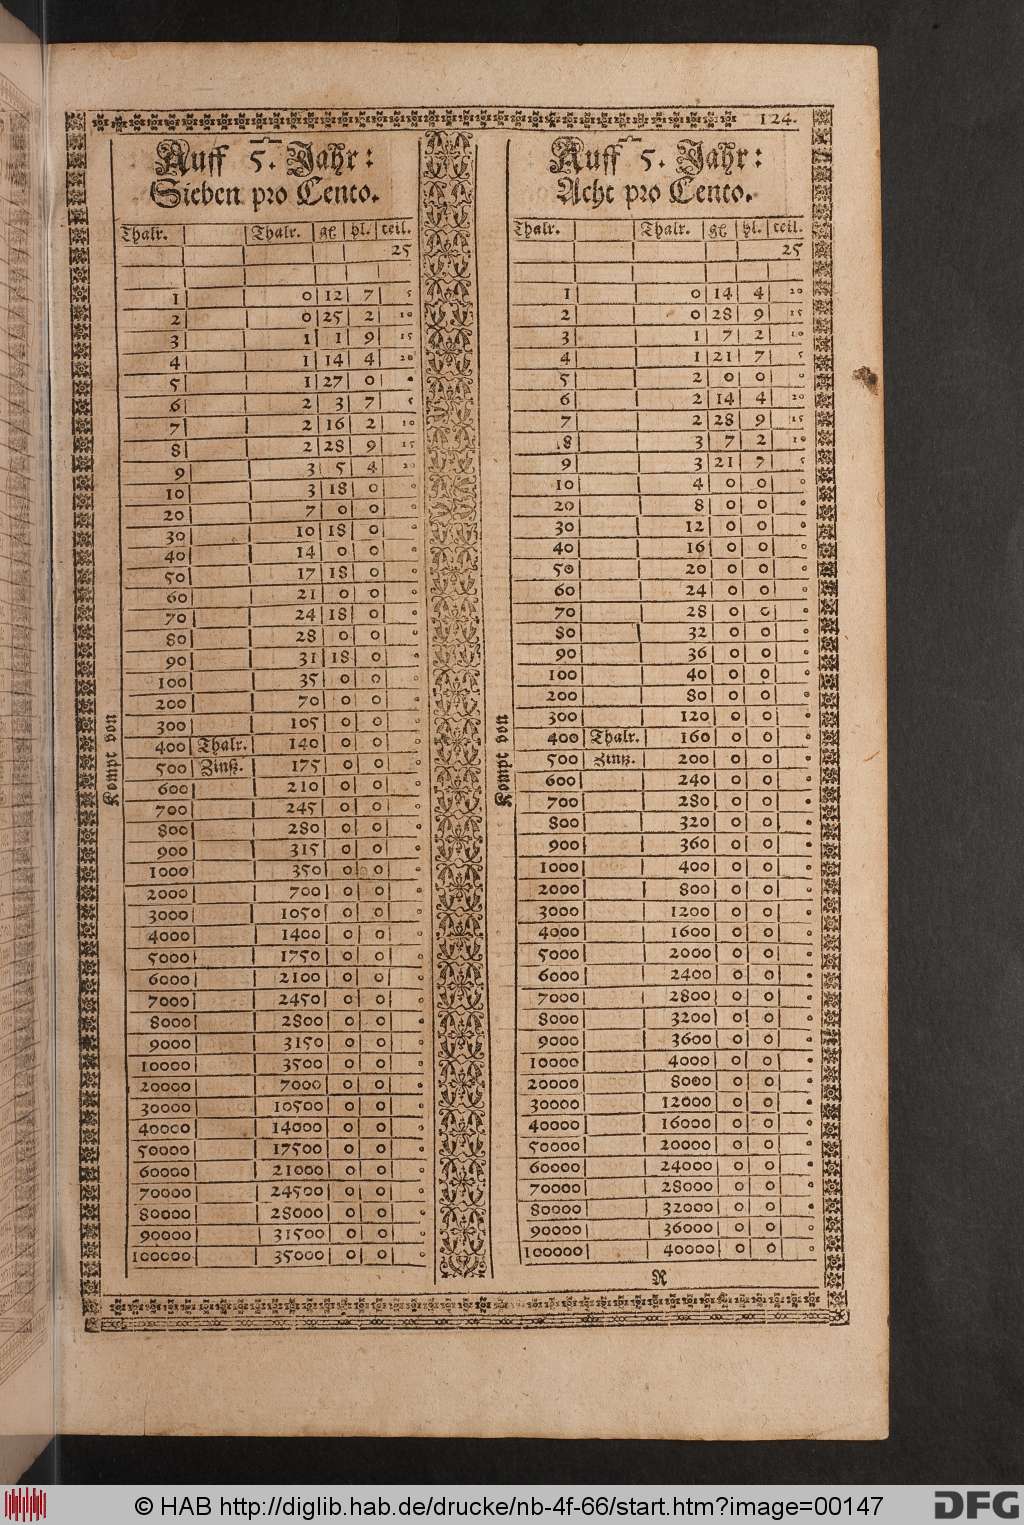 124.
Auff 5. Jahr:
Sieben pro Cento.
Thalr. Thalr. gl hl. teil.
25
1 0 12 7 5
2 0 25 2 10
3 1 1 9 15
4 1 14 4 20
5 1 27 0 0
6 2 3 7 5
7 2 16 2 10
8 2 28 9 15
9 3 5 4 20
10 3 18 0 0
20 7 0 0 0
30 10 18 0 0
40 14 0 0 0
50 17 18 0 0
60 21 0 0 0
70 24 18 0 0
80 28 0 0 0
90 31 18 0 0
100 35 0 0 0
200 70 0 0 0
300 105 0 0 0
400 Thalr. 140 0 0 0
500 Zinß. 175 0 0 0
600 210 0 0 0
700 245 0 0 0
800 280 0 0 0
900 315 0 0 0
1000 350 0 0 0
2000 700 0 0 0
3000 1050 0 0 0
4000 1400 0 0 0
5000 1750 0 0 0
6000 2100 0 0 0
7000 2450 0 0 0
8000 2800 0 0 0
9000 3150 0 0 0
10000 3500 0 0 0
20000 7000 0 0 0
30000 10500 0 0 0
40000 14000 0 0 0
50000 17500 0 0 0
60000 21000 0 0 0
70000 24500 0 0 0
80000 28000 0 0 0
90000 31500 0 0 0
100000 35000 0 0 0
Kompt von
Auff 5. Jahr:
Acht pro Cento.
Thalr. Thalr. gl hl. teil.
25
1 0 14 4 20
2 0 28 9 15
3 1 7 2 10
4 1 21 7 5
5 2 0 0 0
6 2 14 4 20
7 2 28 9 15
8 3 7 2 10
9 3 21 7 5
10 4 0 0 0
20 8 0 0 0
30 12 0 0 0
40 16 0 0 0
50 20 0 0 0
60 24 0 0 0
70 28 0 0 0
80 32 0 0 0
90 36 0 0 0
100 40 0 0 0
200 80 0 0 0
300 120 0 0 0
400 Thalr. 160 0 0 0
500 Zinß. 200 0 0 0
600 240 0 0 0
700 280 0 0 0
800 320 0 0 0
900 360 0 0 0
1000 400 0 0 0
2000 800 0 0 0
3000 1200 0 0 0
4000 1600 0 0 0
5000 2000 0 0 0
6000 2400 0 0 0
7000 2800 0 0 0
8000 3200 0 0 0
9000 3600 0 0 0
10000 4000 0 0 0
20000 8000 0 0 0
30000 12000 0 0 0
40000 16000 0 0 0
50000 20000 0 0 0
60000 24000 0 0 0
70000 28000 0 0 0
80000 32000 0 0 0
90000 36000 0 0 0
100000 40000 0 0 0
Kompt von
R
© HAB http://diglib.hab.de/drucke/nb-4f-66/start.htm?image=00147
DFG